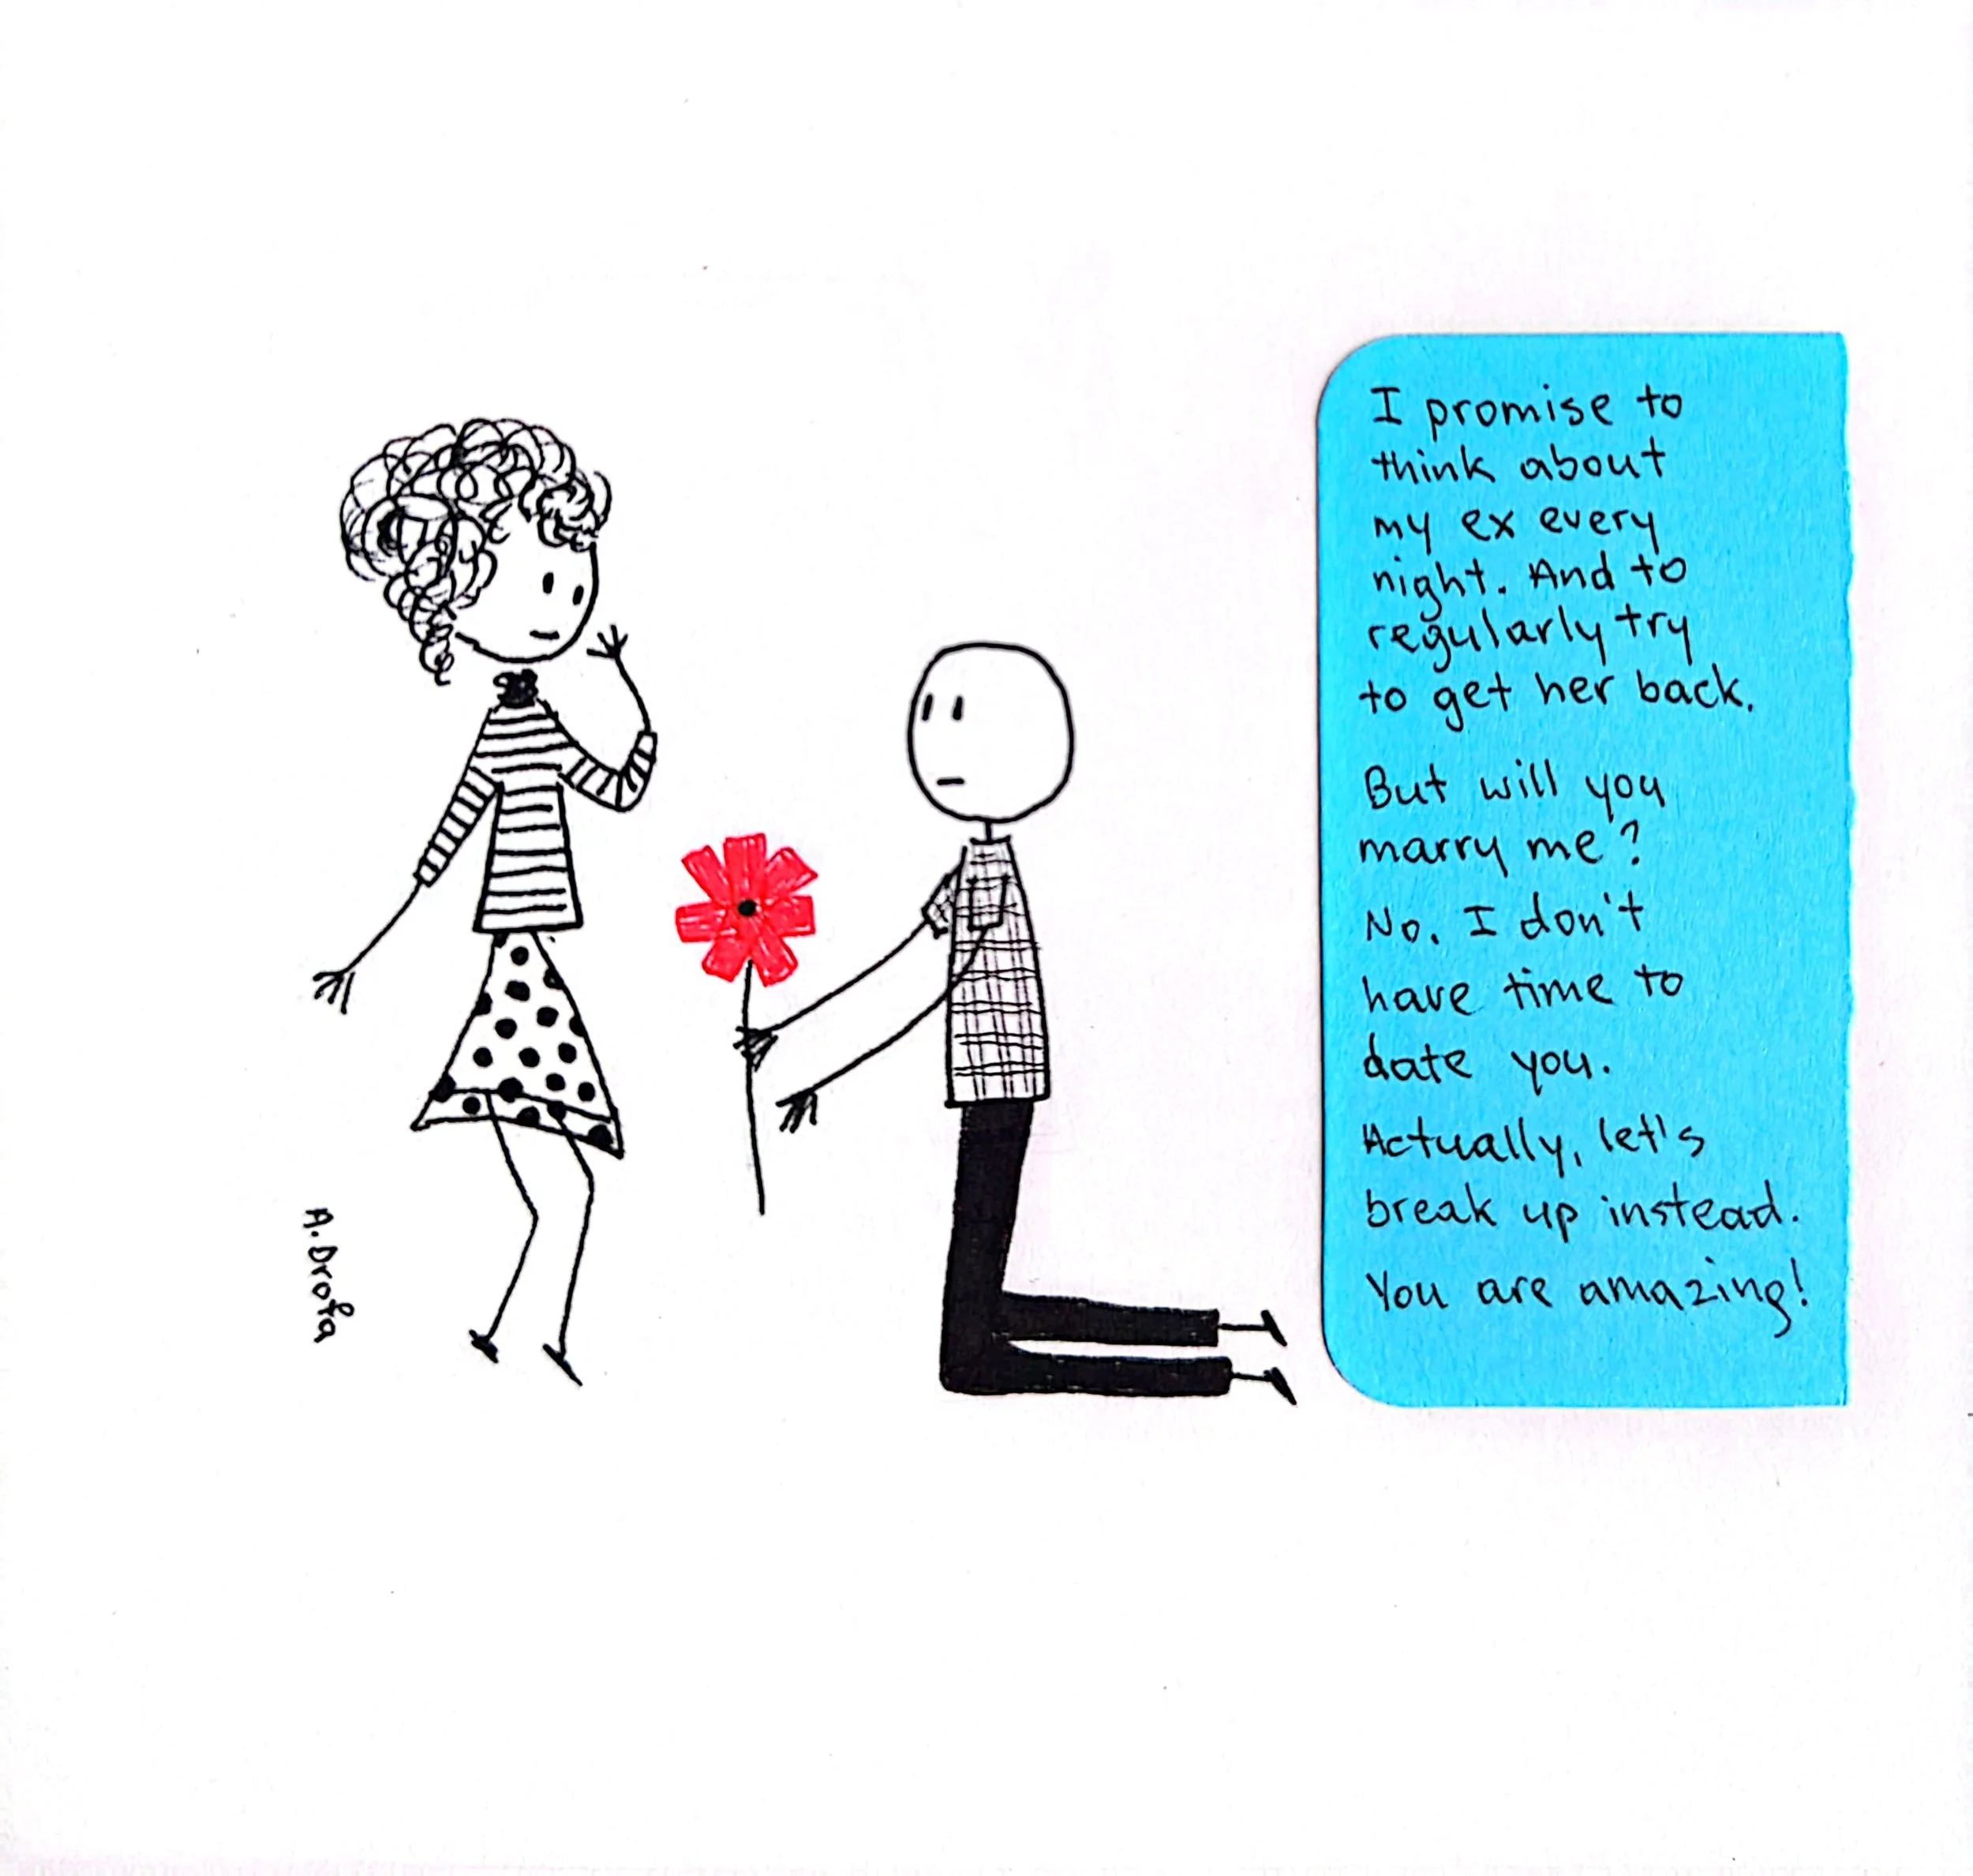 I promise to
think about
my ex every
night. And to
regularly try
to get her back.
But will you
marry me?
No. I don't
have time to
date you.
Actually, let's
break up instead.
You are amazing!
A. Drofa